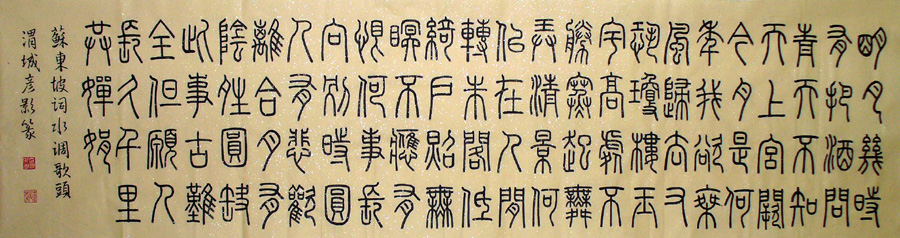 明月幾時
有把酒問
青天不知
天上宮闕
今夕是何
年我欲乘
風歸去又
恐瓊樓玉
宇高處不
勝寒起舞
弄清景何
似在人間
轉朱閣低
綺戶照無
眠不應有
恨何事長
向別時圓
人有悲歡
離合月有
陰晴圓缺
此事古難
全但願人
長久千里
共嬋娟
蘇東坡词水调歌頭
渭城彦影篆